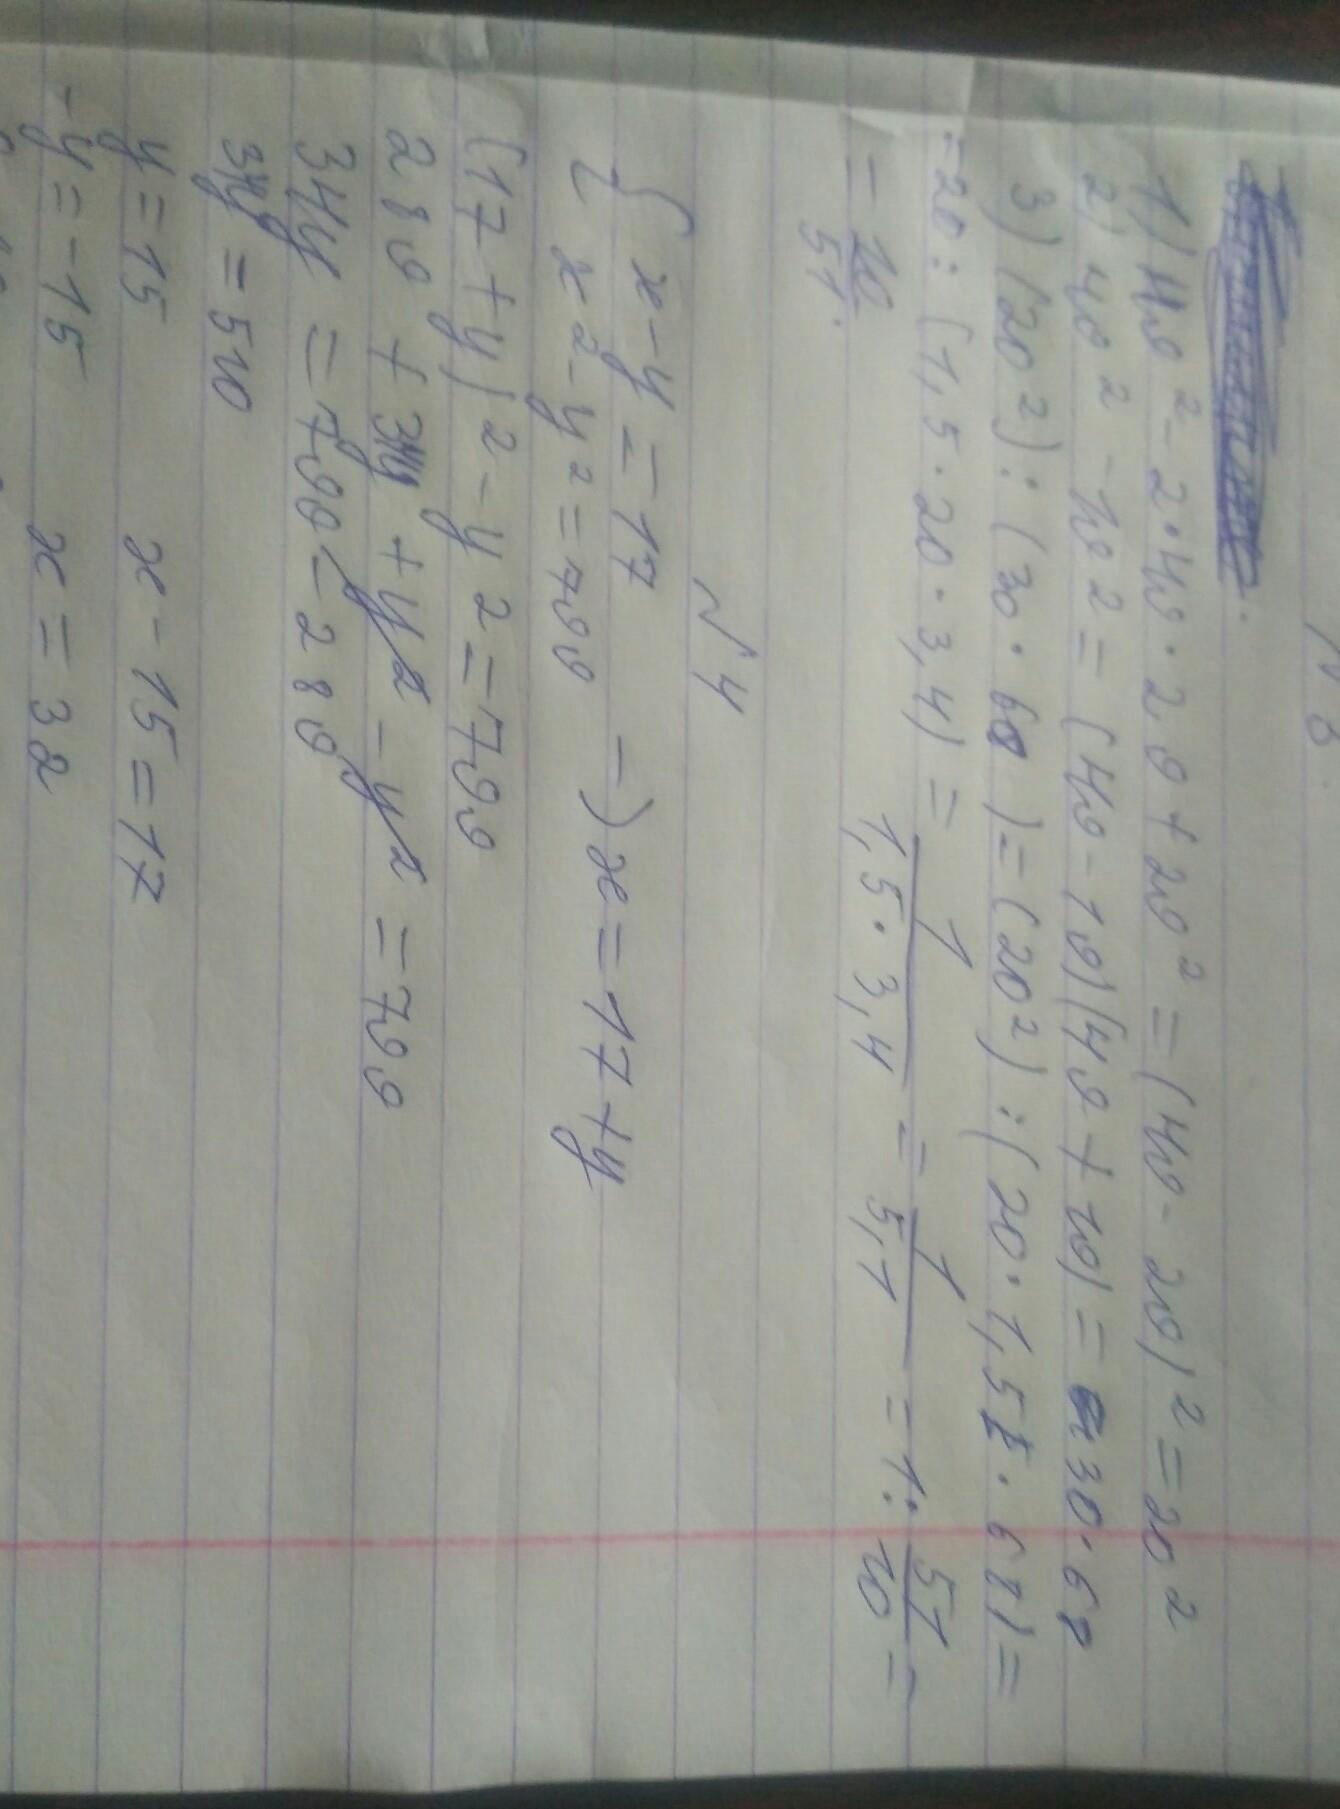 N 3.
1) 49² - 2·49·29 + 29² = (49 - 29)² = 20²
2) 49² - 19² = (49 - 19)(49 + 19) = 30·68
3) (20²) : (30·68) = (20²) : (20·1,5·68) =
= 20 : (1,5·20·3,4) = 1/(1,5·3,4) = 1/5,1 = 1 : 51/10 =
= 10/51.
N 4
{ x - y = 17 -) x = 17 + y
x² - y² = 799
(17 + y)² - y² = 799
289 + 34y + y² - y² = 799
34y = 799 - 289
34y = 510
y = 15 x - 15 = 17
-y = -15 x = 32